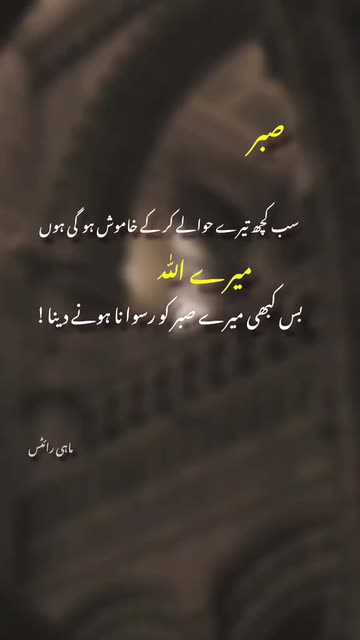 صبر
سب کچھ تیرے حوالے کر کے خاموش ہو گی ہوں
میرے اللہ
بس کبھی میرے صبر کو رسوا نا ہونے دینا !
ماہی رائٹس